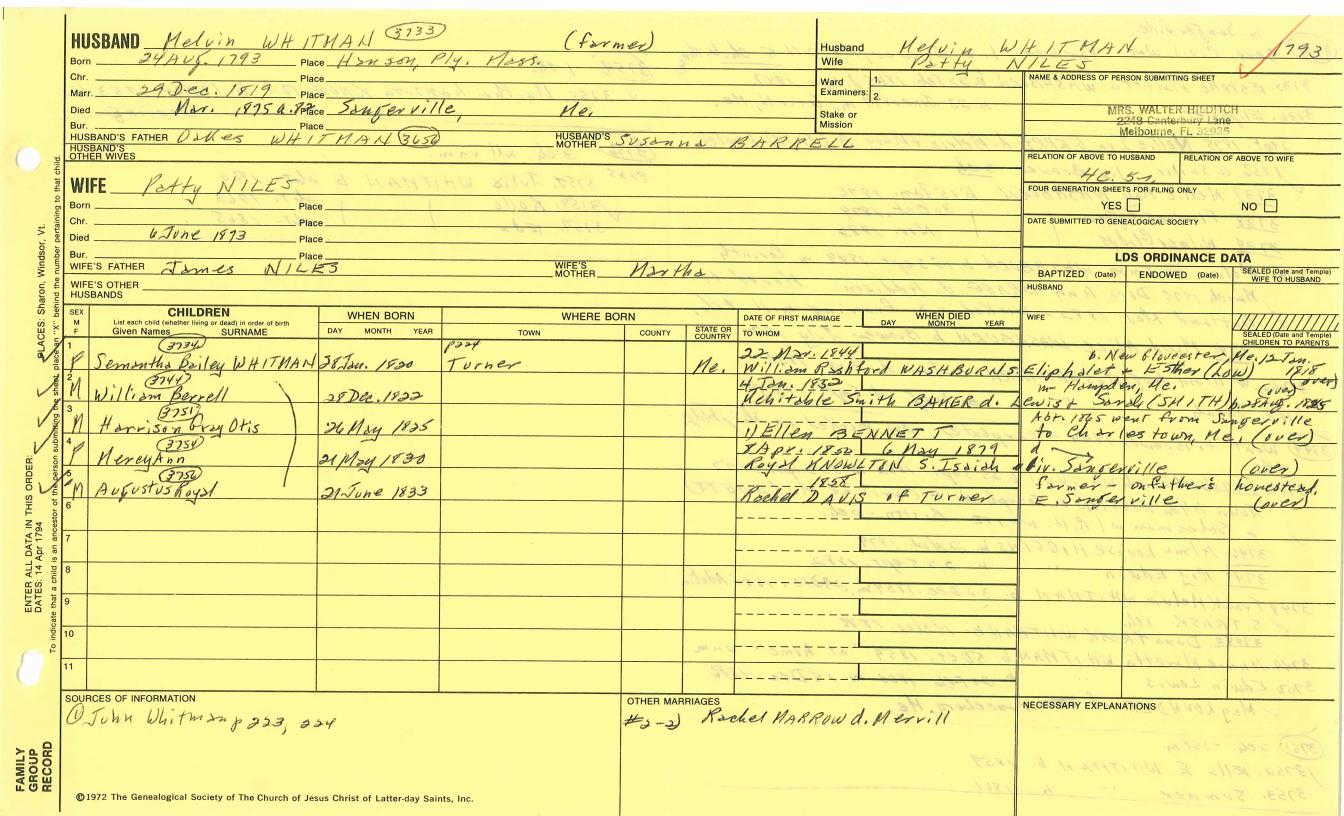 HUSBAND Melvin WHITMAN 3733 (farmer)
Born 24 Aug. 1793 Place Hanson, Ply. Mass.
Chr. Place
Marr. 29 Dec. 1819 Place
Died Mar. 1875 a. 82 Place Sangerville, Me.
Bur. Place
HUSBAND'S FATHER Oakes WHITMAN 3650 HUSBAND'S MOTHER Susanna BARRELL
HUSBAND'S OTHER WIVES
WIFE Patty NILES
Born Place
Chr. Place
Died 6 June 1873 Place
Bur. Place
WIFE'S FATHER James NILES WIFE'S MOTHER Martha
WIFE'S OTHER HUSBANDS
Husband Melvin WHITMAN 1793
Wife Patty NILES
Ward Examiners: 1. 2.
Stake or Mission
NAME & ADDRESS OF PERSON SUBMITTING SHEET
MRS. WALTER HILDITCH
2248 Canterbury Lane
Melbourne, FL 32935
RELATION OF ABOVE TO HUSBAND RELATION OF ABOVE TO WIFE
4C. 5r.
FOUR GENERATION SHEETS FOR FILING ONLY
YES NO
DATE SUBMITTED TO GENEALOGICAL SOCIETY
LDS ORDINANCE DATA
BAPTIZED (Date) ENDOWED (Date) SEALED (Date and Temple) WIFE TO HUSBAND
HUSBAND
WIFE
SEALED (Date and Temple) CHILDREN TO PARENTS
SEX M F
CHILDREN
List each child (whether living or dead) in order of birth
Given Names SURNAME
WHEN BORN
DAY MONTH YEAR
WHERE BORN
TOWN COUNTY STATE OR COUNTRY
DATE OF FIRST MARRIAGE
TO WHOM
WHEN DIED
DAY MONTH YEAR
1 3734 p224 22 Mar. 1844 b. New Gloucester, Me. 12 Jan.
F Semantha Bailey WHITMAN 28 Jan. 1820 Turner Me. William Rashford WASHBURN s. Eliphalet & Esther (Low) 1818 (over)
2 3744 4 Jan. 1852 m Hampden, Me. (over)
M William Berrell 28 Dec. 1822 Mehitable Smith BAKER d. Lewis & Sarah (SMITH) b. 28 Aug. 1825
3 3751 Abt. 1865 went from Sangerville
M Harrison Gray Otis 26 May 1825 1) Ellen BENNETT to Charlestown, Me. (over)
4 3754 8 Apr. 1850 6 May 1879 d
F Mercy Ann 21 May 1830 Royal KNOWLTON s. Isaiah liv. Sangerville (over)
5 3756 1858 farmer - on father's homestead.
M Augustus Royal 21 June 1833 Rachel DAVIS of Turner E. Sangerville (over)
6
7
8
9
10
11
SOURCES OF INFORMATION
① John Whitman p 223, 224
OTHER MARRIAGES
#2-2) Rachel MARROW d. Merrill
NECESSARY EXPLANATIONS
©1972 The Genealogical Society of The Church of Jesus Christ of Latter-day Saints, Inc.
FAMILY GROUP RECORD
ENTER ALL DATA IN THIS ORDER:
DATES: 14 Apr 1794 PLACES: Sharon, Windsor, Vt.
To indicate that a child is an ancestor of the person submitting the sheet, place an "X" behind the number pertaining to that child.